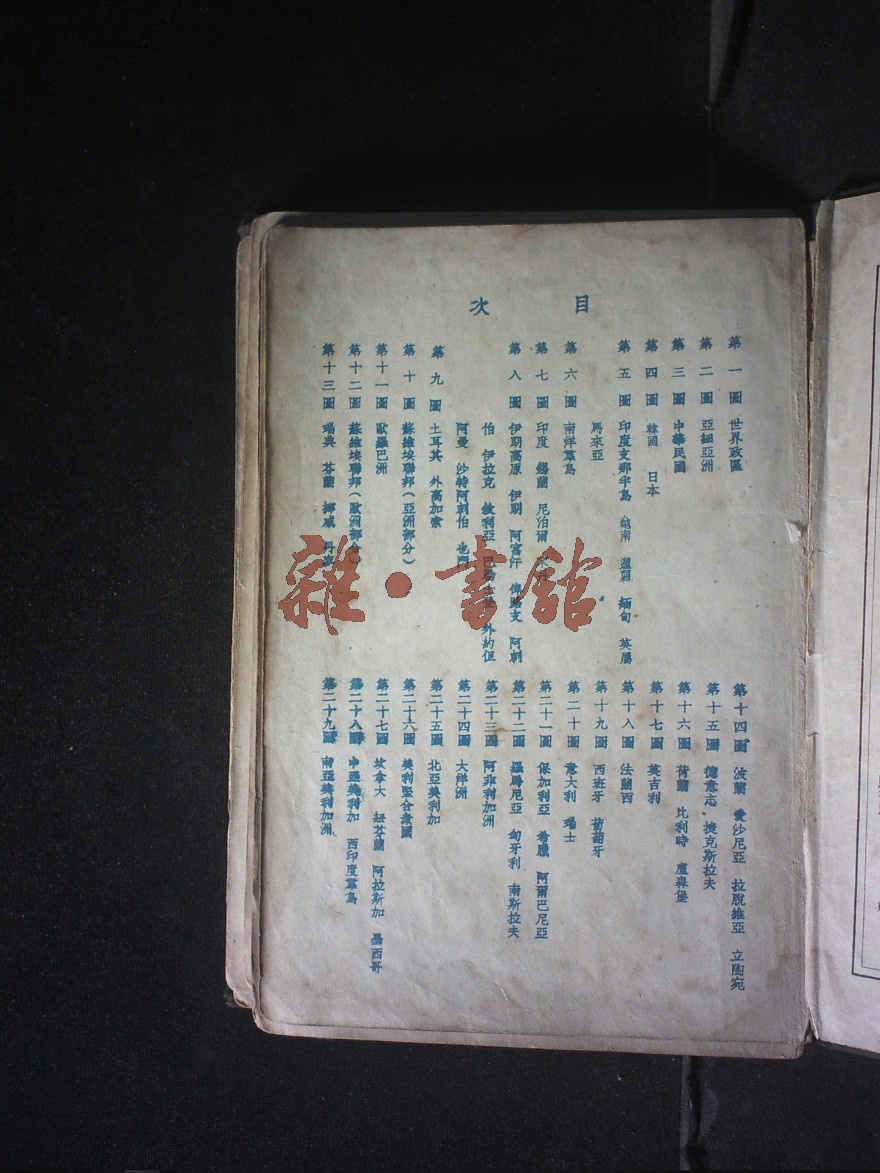 目次
第一圖 世界政區
第二圖 亞細亞洲
第三圖 中華民國
第四圖 韓國 日本
第五圖 印度支那半島 越南 暹羅 緬甸 英屬
馬來亞
第六圖 南洋羣島
第七圖 印度 錫蘭 尼泊爾
第八圖 伊朗高原 伊朗 阿富汗 俾路支 阿剌
伯 伊拉克 敘利亞 外約但
阿曼 沙特阿剌伯 也門
第九圖 土耳其 外高加索
第十圖 蘇維埃聯邦(亞洲部分)
第十一圖 歐羅巴洲
第十二圖 蘇維埃聯邦(歐洲部分)
第十三圖 瑞典 芬蘭 挪威 丹麥
第十四圖 波蘭 愛沙尼亞 拉脫維亞 立陶宛
第十五圖 德意志 捷克斯拉夫
第十六圖 荷蘭 比利時 盧森堡
第十七圖 英吉利
第十八圖 法蘭西
第十九圖 西班牙 葡萄牙
第二十圖 意大利 瑞士
第二十一圖 保加利亞 希臘 阿爾巴尼亞
第二十二圖 羅馬尼亞 匈牙利 南斯拉夫
第二十三圖 阿非利加洲
第二十四圖 大洋洲
第二十五圖 北亞美利加
第二十六圖 美利堅合衆國
第二十七圖 坎拿大 紐芬蘭 阿拉斯加 墨西哥
第二十八圖 中亞美利加 西印度羣島
第二十九圖 南亞美利加洲
雜·書館